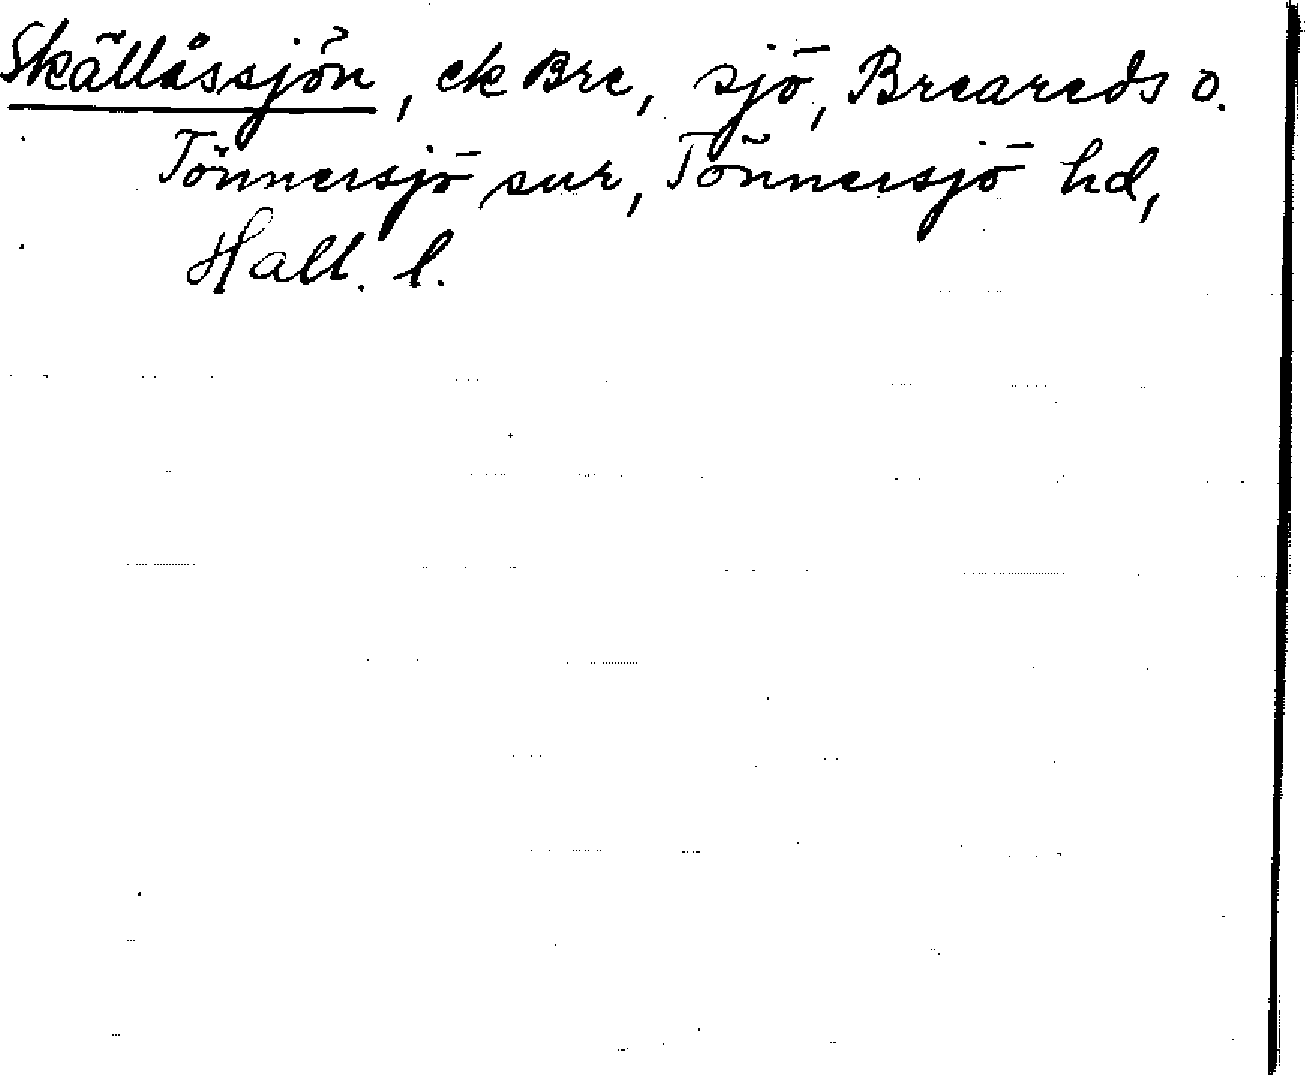 Skällåssjön, ek Bre, sjö, Breareds o.
Tönnersjö snr, Tönnersjö hd,
Hall. l.